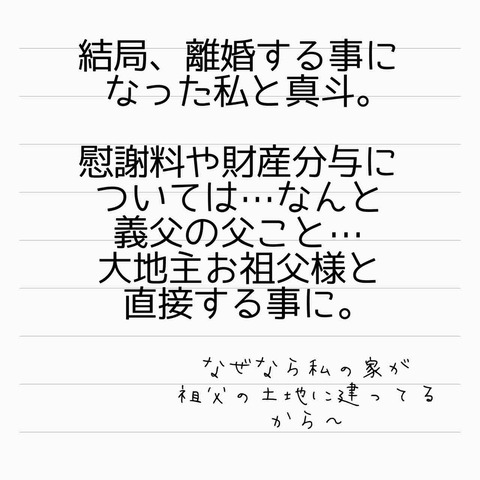 結局、離婚する事に
なった私と真斗。
慰謝料や財産分与に
ついては…なんと
義父の父こと…
大地主お祖父様と
直接する事に。
なぜなら私の家が
祖父の土地に建ってる
から〜